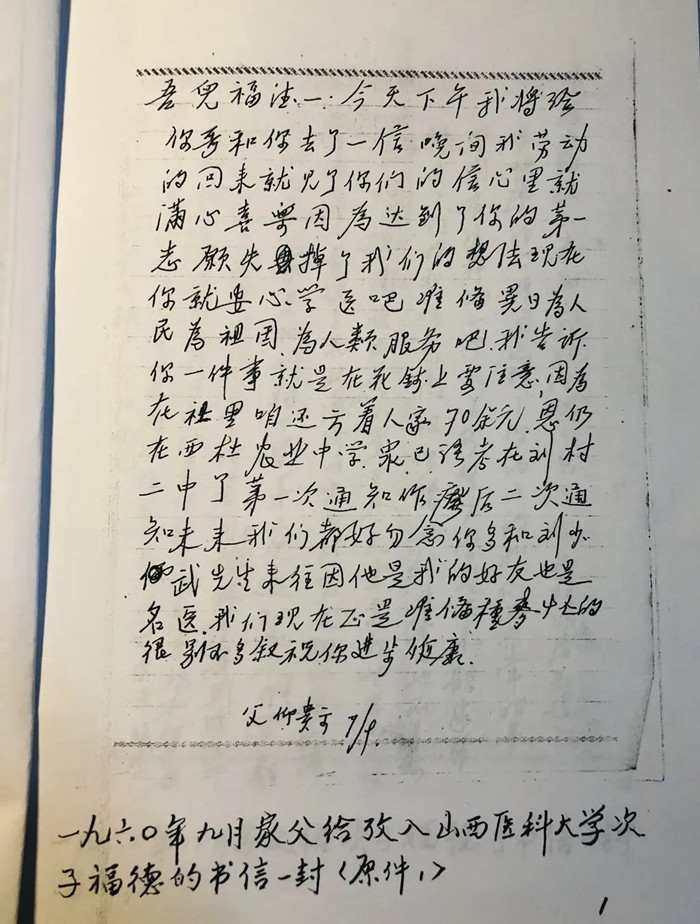 吾兒福法一：今天下午我將給
你哥和你去了一信晚间我劳动
的回来就见了你们的信心里就
满心喜樂因為达到了你的第一
志愿失掉了我们的想法现在
你就安心学医吧准备異日為人
民為祖国為人類服务吧.我告诉
你一件事就是在花錢上要注意,因為
在社里咱还亏着人家70余元,恩仍
在西杜农业中学.眾已考在刘村
二中了第一次通知作癈后二次通
知未来我们都好勿念你多和刘少
武先生来往因他是我的好友也是
名医.我们现在正是准备種麥忙的
很别不多叙祝你进步健康.
父仰贵字 7/9.
一九六0年九月家父给孜入山西医科大学次
子福德的书信一封（原件,）
1